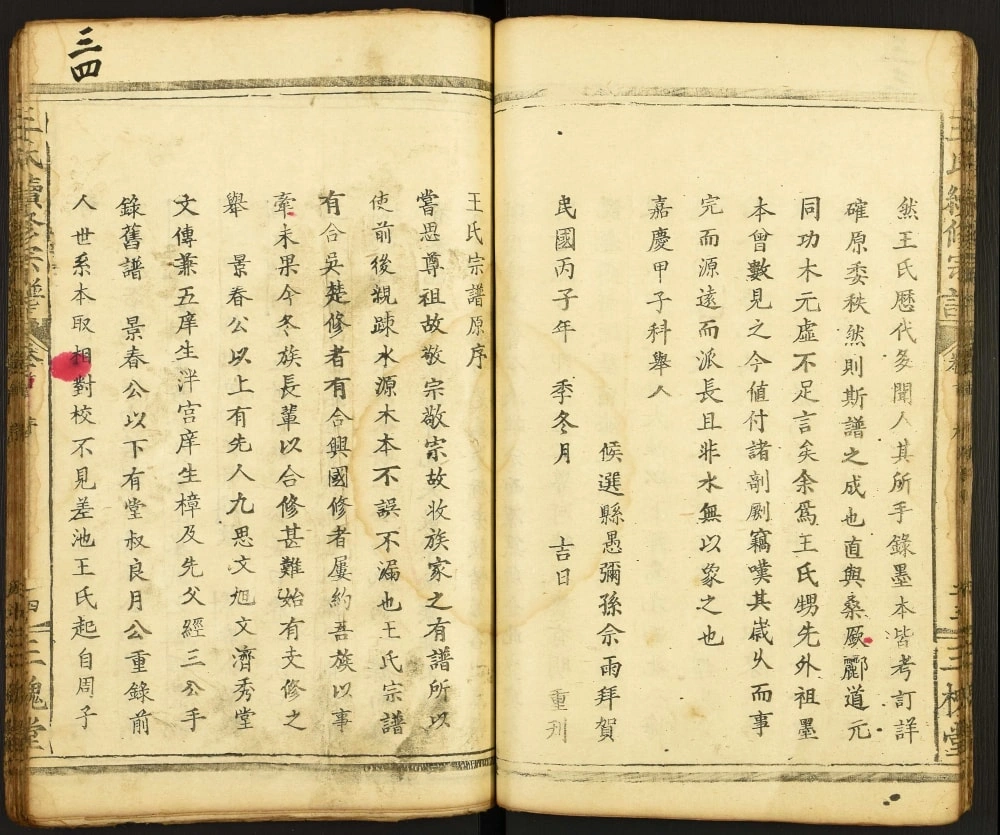 然王氏歷代多聞人其所手錄墨本皆考訂詳
確原委秩然則斯譜之成也直與桑厥酈道元
同功木元虛不足言矣余爲王氏甥先外祖墨
本曾數見之今值付諸剞劂竊嘆其歲久而事
完而源遠而派長且非水無以象之也
嘉慶甲子科舉人
候選縣愚彌孫佘雨拜賀
民國丙子年 季冬月 吉日 重刋
王氏宗譜原序
嘗思尊祖故敬宗敬宗故收族家之有譜所以
使前後親踈水源木本不誤不漏也王氏宗譜
有合吳楚修者有合興國修者屢約吾族以事
牽未果今冬族長輩以合修甚難始有支修之
舉 景春公以上有先人九思文旭文濟秀堂
文傳兼五庠生泮宫庠生樟及先父經三公手
錄舊譜 景春公以下有堂叔良月公重錄前
人世系本取相對校不見差池王氏起自周子
王氏續修宗譜
卷首
三槐堂
三四